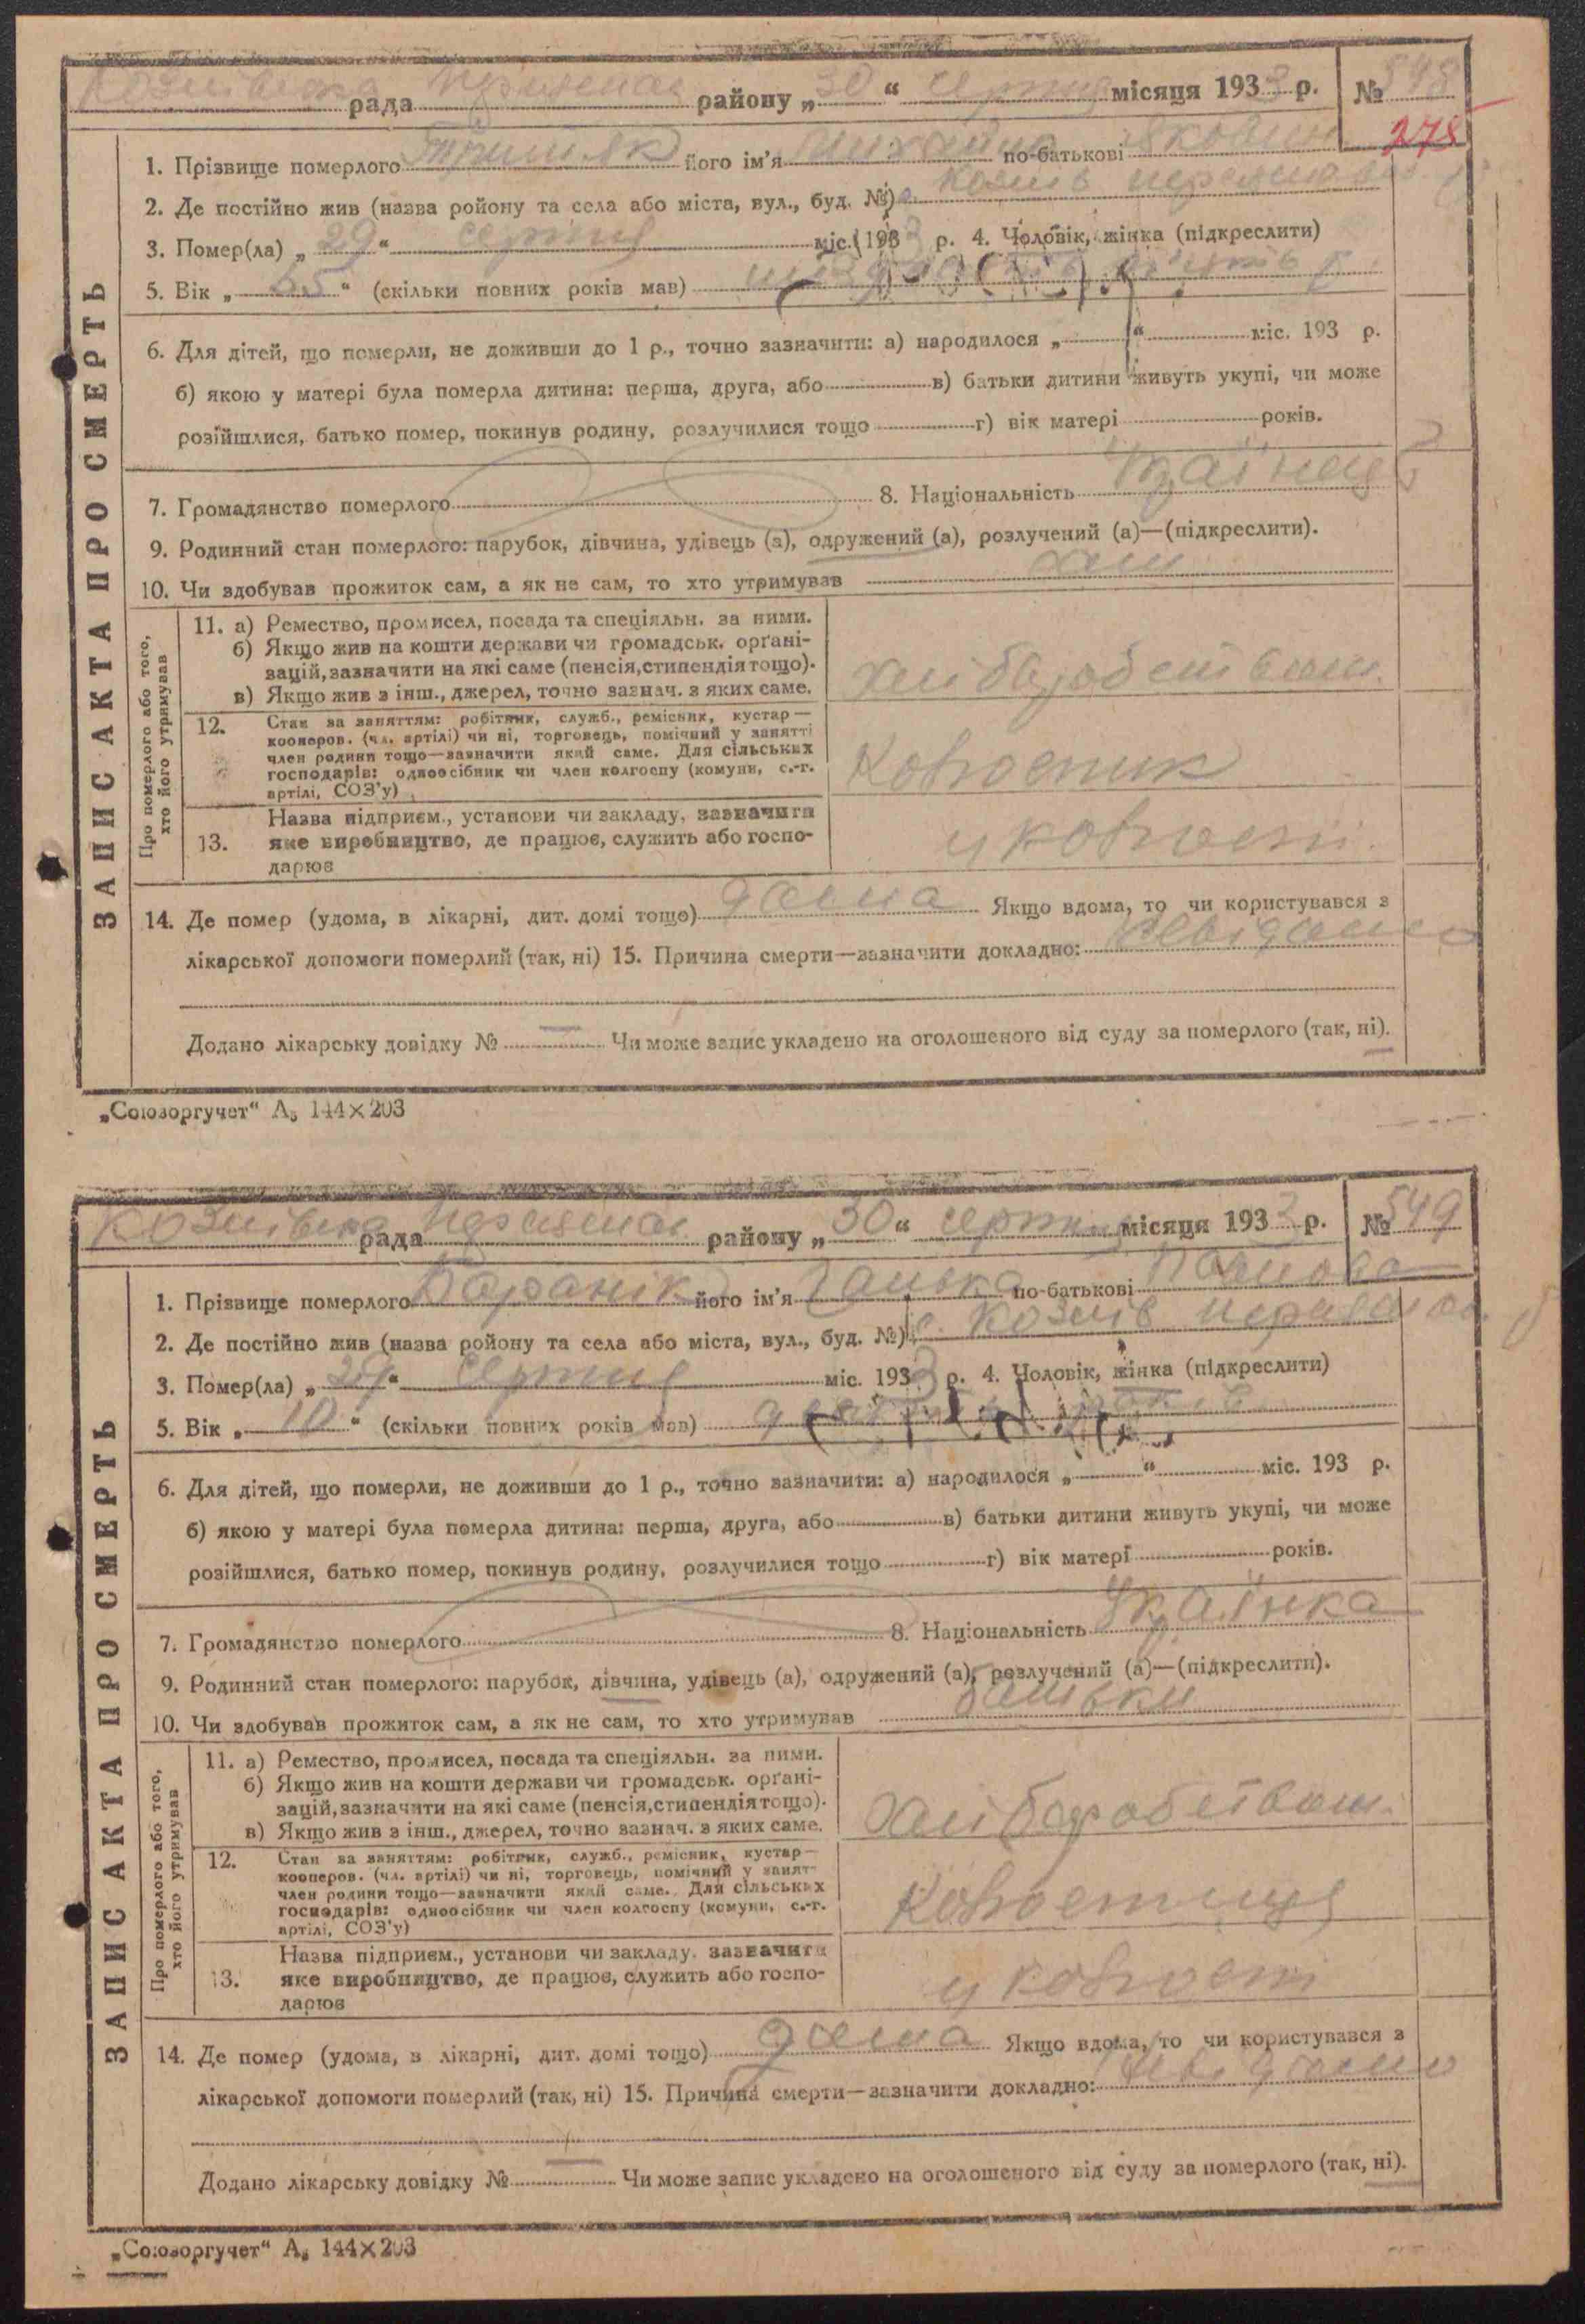 рада району „30“ серпня місяця 1933 р. № 548
278
1. Прізвище померлого його ім'я Михайло по-батькові
2. Де постійно жив (назва ройону та села або міста, вул., буд. №) с. Козлів
3. Помер(ла) „29“ серпня міс. 1933 р. 4. Чоловік, жінка (підкреслити)
5. Вік „65“ (скільки повних років мав)
6. Для дітей, що померли, не доживши до 1 р., точно зазначити: а) народилося „ “ міс. 193 р.
б) якою у матері була померла дитина: перша, друга, або в) батьки дитини живуть укупі, чи може
розійшлися, батько помер, покинув родину, розлучилися тощо г) вік матері років.
7. Громадянство померлого 8. Національність
9. Родинний стан померлого: парубок, дівчина, удівець (а), одружений (а), розлучений (а)—(підкреслити).
10. Чи здобував прожиток сам, а як не сам, то хто утримував сам
ЗАПИС АКТА ПРО СМЕРТЬ
Про померлого або того,
хто його утримував
11. а) Ремество, промисел, посада та спеціяльн. за ними.
б) Якщо жив на кошти держави чи громадськ. орґані-
зацій, зазначити на які саме (пенсія, стипендія тощо).
в) Якщо жив з інш., джерел, точно зазнач. з яких саме.
хліборобством.
12. Стан за заняттям: робітник, служб., ремісник, кустар—
кооперов. (чл. артілі) чи ні, торговець, помічний у занятті
член родини тощо—зазначити який саме. Для сільських
господарів: одноосібник чи член колгоспу (комуни, с.-г.
артілі, СОЗ'у)
Колгоспник
13. Назва підприєм., установи чи закладу, зазначити
яке виробництво, де працює, служить або госпо-
дарює
у колгоспі.
14. Де помер (удома, в лікарні, дит. домі тощо) дома Якщо вдома, то чи користувався з
лікарської допомоги померлий (так, ні) 15. Причина смерти—зазначити докладно: Невідомо
Додано лікарську довідку № — Чи може запис укладено на оголошеного від суду за померлого (так, ні).
„Союзоргучет“ А₅ 144×203
Козлівська рада району „30“ серпня місяця 1933 р. № 549
1. Прізвище померлого Бараник його ім'я Ганька по-батькові
2. Де постійно жив (назва ройону та села або міста, вул., буд. №) с. Козлів
3. Помер(ла) „29“ серпня міс. 1933 р. 4. Чоловік, жінка (підкреслити)
5. Вік „10“ (скільки повних років мав)
6. Для дітей, що померли, не доживши до 1 р., точно зазначити: а) народилося „ “ міс. 193 р.
б) якою у матері була померла дитина: перша, друга, або в) батьки дитини живуть укупі, чи може
розійшлися, батько помер, покинув родину, розлучилися тощо г) вік матері років.
7. Громадянство померлого 8. Національність Українка
9. Родинний стан померлого: парубок, дівчина, удівець (а), одружений (а), розлучений (а)—(підкреслити).
10. Чи здобував прожиток сам, а як не сам, то хто утримував батьки
ЗАПИС АКТА ПРО СМЕРТЬ
Про померлого або того,
хто його утримував
11. а) Ремество, промисел, посада та спеціяльн. за ними.
б) Якщо жив на кошти держави чи громадськ. орґані-
зацій, зазначити на які саме (пенсія, стипендія тощо).
в) Якщо жив з інш., джерел, точно зазнач. з яких саме.
хліборобством.
12. Стан за заняттям: робітник, служб., ремісник, кустар—
кооперов. (чл. артілі) чи ні, торговець, помічний у занят-
член родини тощо—зазначити який саме. Для сільських
господарів: одноосібник чи член колгоспу (комуни, с.-г.
артілі, СОЗ'у)
Колгоспниця
13. Назва підприєм., установи чи закладу, зазначити
яке виробництво, де працює, служить або госпо-
дарює
у колгоспі
14. Де помер (удома, в лікарні, дит. домі тощо) дома Якщо вдома, то чи користувався з
лікарської допомоги померлий (так, ні) 15. Причина смерти—зазначити докладно: Невідомо
Додано лікарську довідку № — Чи може запис укладено на оголошеного від суду за померлого (так, ні).
„Союзоргучет“ А₅ 144×203